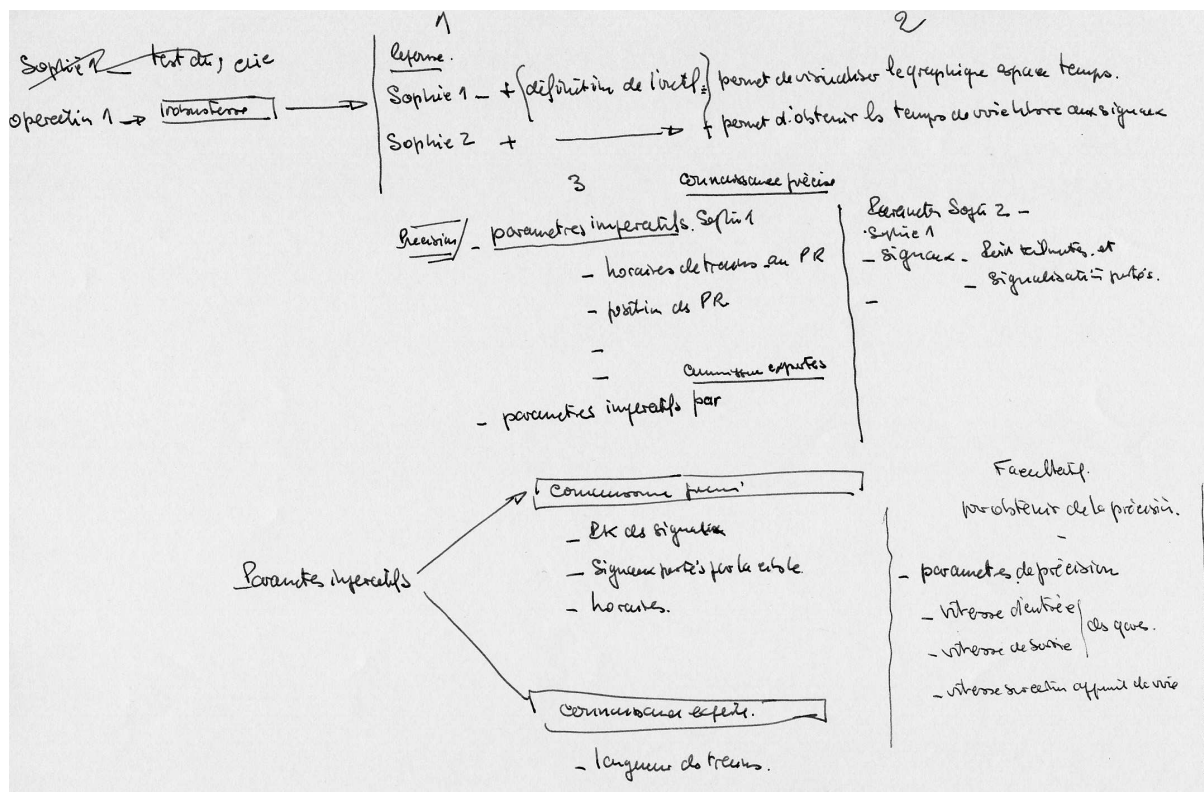 1
2
Sophie 1 – test du, clic
operation 1 → robustesse
Reponse.
Sophie 1 – + { définition de l'outil = } permet de visualiser le graphique espace temps.
Sophie 2 + → + permet d'obtenir les temps de voie libre aux signaux
3
connaissance précise
Precision – parametres imperatifs. Sophie 1
– horaires de trains au PR
– position des PR
–
–
connaissance expertes
– parametres imperatifs par
Parametres Sophie 2 –
Sophie 1
– signaux –
– signalisation portés.
–
Parametres imperatifs
connaissance
– PK des signaux
– Signaux portés par la cible
– horaires.
connaissance experte.
– longueur des trains.
Facultatif.
pour obtenir de la précision.
–
– parametres de précision
– vitesse d'entrée } des gares.
– vitesse de sortie
– vitesse sur appareil de voie